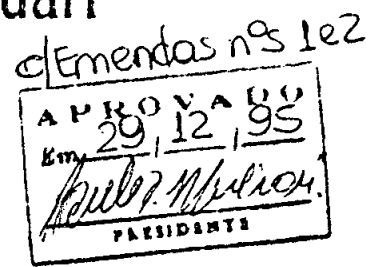 c/Emendas nºs 1e2
APROVADO
Em, 29, 12, 95
PRESIDENTE